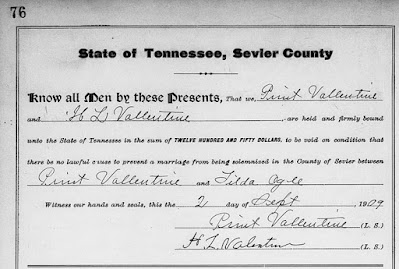 76
State of Tennessee, Sevier County
Know all Men by these Presents, That we, Print Vallentine
and H L Vallentine, are held and firmly bound
unto the State of Tennessee in the sum of TWELVE HUNDRED AND FIFTY DOLLARS, to be void on condition that
there be no lawful cause to prevent a marriage from being solemnized in the County of Sevier between
Print Vallentine and Tilda Ogle
Witness our hands and seals, this the 2 day of Sept 1909
Print Vallentine (L. S.)
H L Valentine (L. S.)